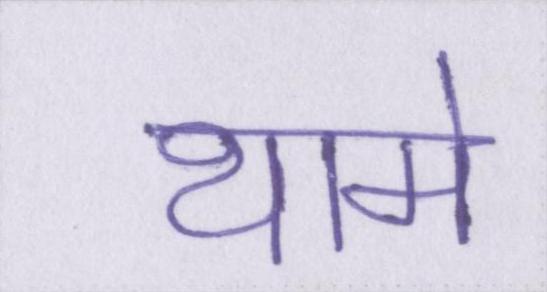 थामे